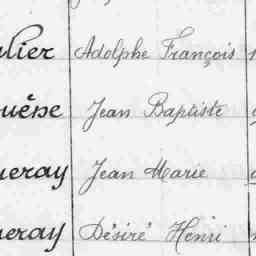 lier Adolphe François
uêne Jean Baptiste
ueray Jean Marie
ueray Désiré Henri